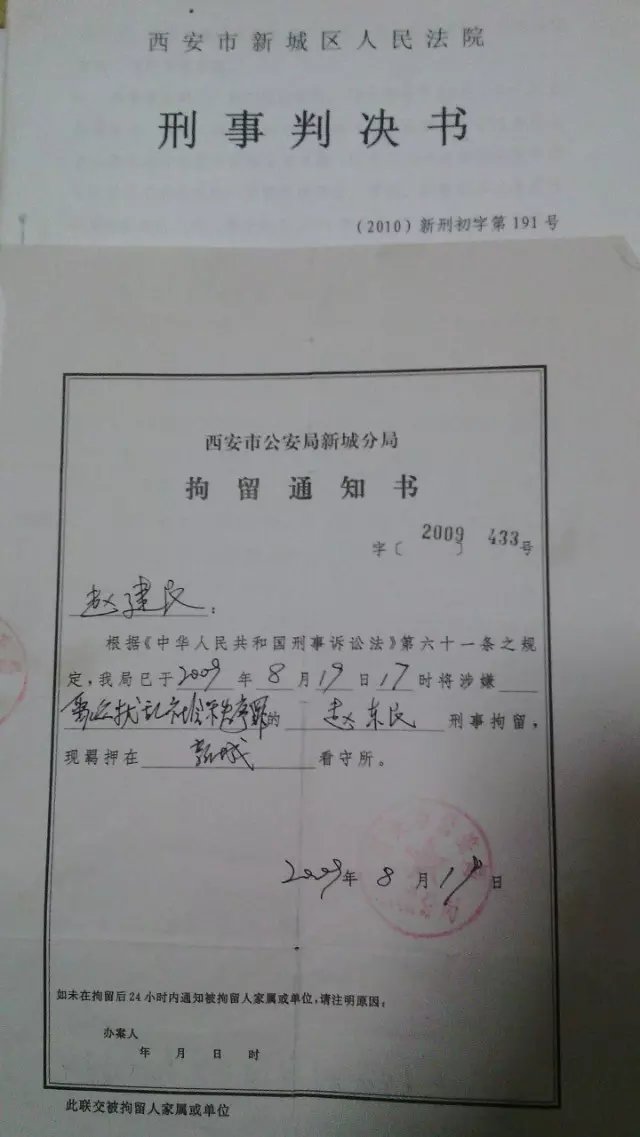 西安市新城区人民法院
刑事判决书
(2010)新刑初字第191号
西安市公安局新城分局
拘留通知书
字〔2009〕433号
赵建民：
根据《中华人民共和国刑事诉讼法》第六十一条之规
定，我局已于2009年8月19日17时将涉嫌
聚众扰乱社会秩序罪的 赵东民 刑事拘留，
现羁押在 新城 看守所。
2009年8月19日
如未在拘留后24小时内通知被拘留人家属或单位，请注明原因：
办案人
年 月 日 时
此联交被拘留人家属或单位